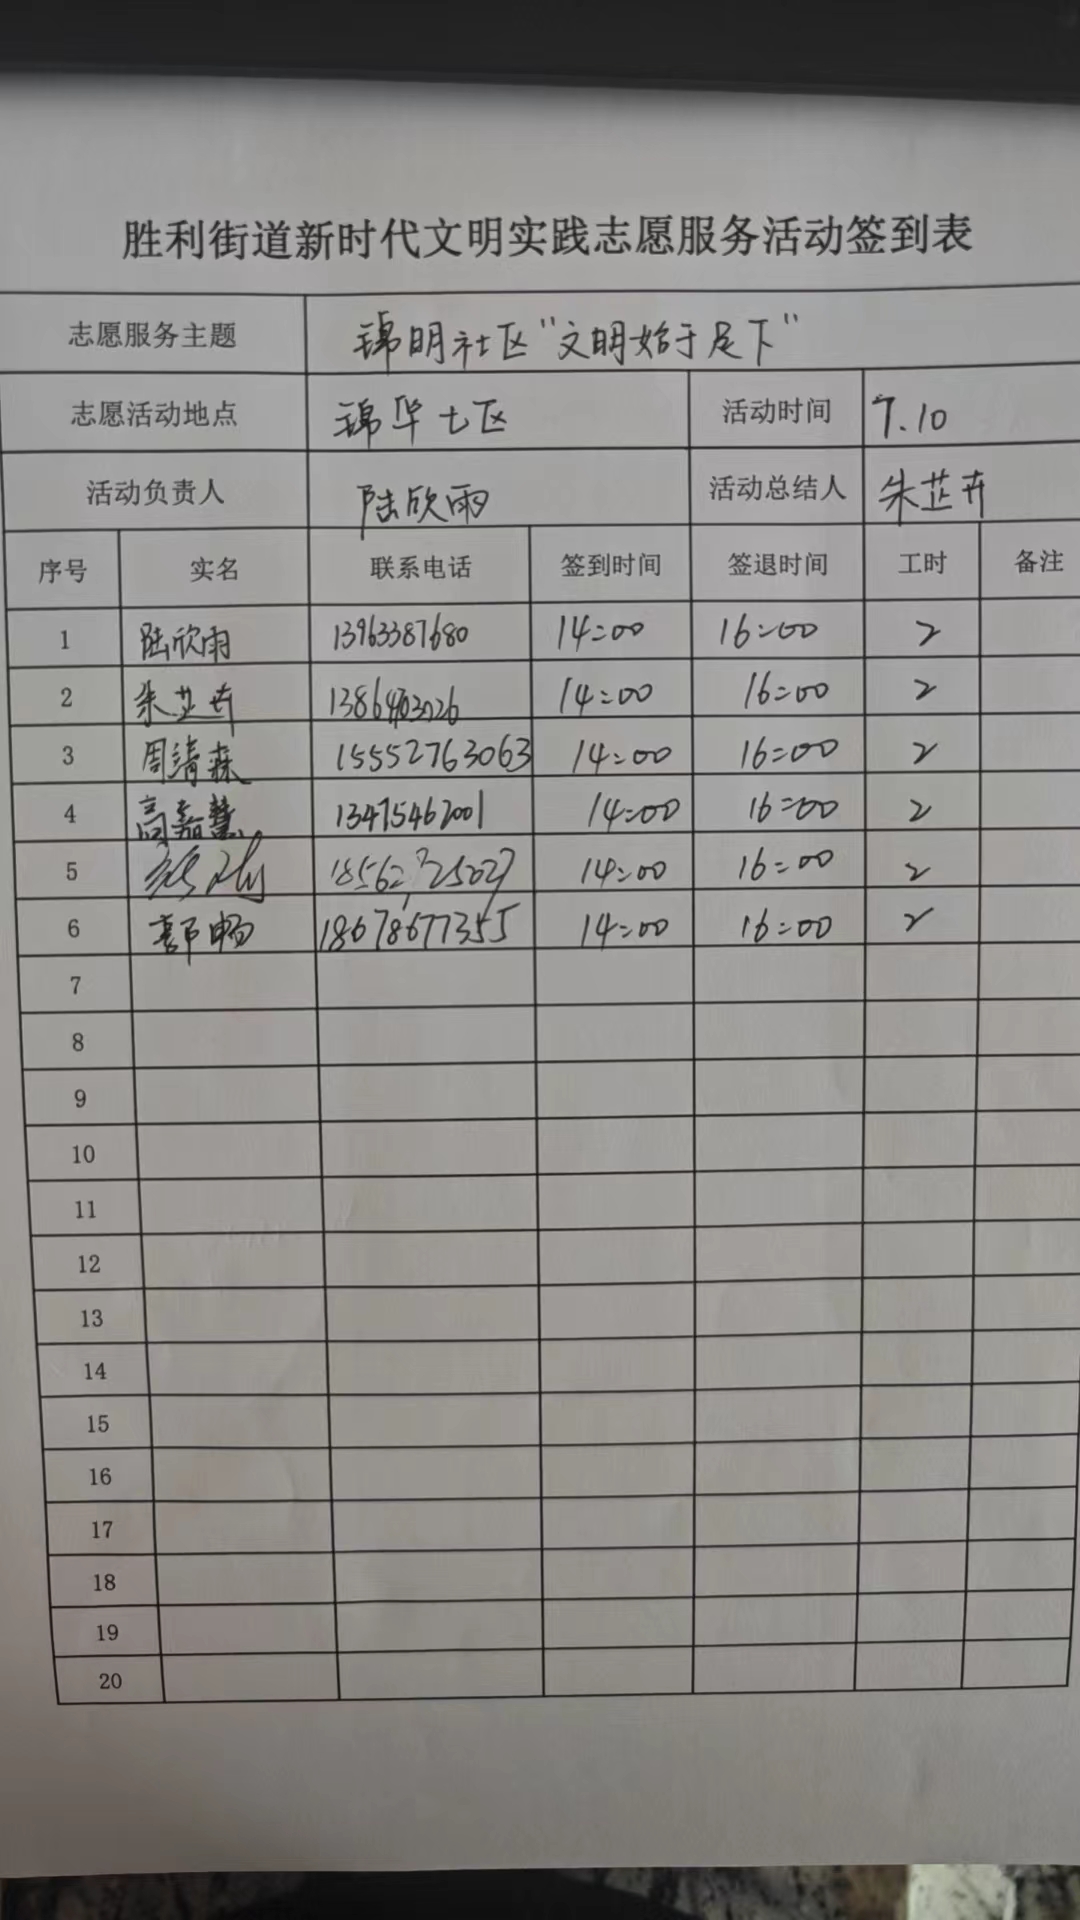 胜利街道新时代文明实践志愿服务活动签到表
志愿服务主题 锦明社区"文明始于足下"
志愿活动地点 锦华七区 活动时间 7.10
活动负责人 陆欣雨 活动总结人 朱芷卉
序号 实名 联系电话 签到时间 签退时间 工时 备注
1 陆欣雨 13963387680 14:00 16:00 2
2 朱芷卉 14:00 16:00 2
3 周清森 15552763063 14:00 16:00 2
4 高嘉慧 13475462001 14:00 16:00 2
5 14:00 16:00 2
6 郭畅 18678677355 14:00 16:00 2
7
8
9
10
11
12
13
14
15
16
17
18
19
20